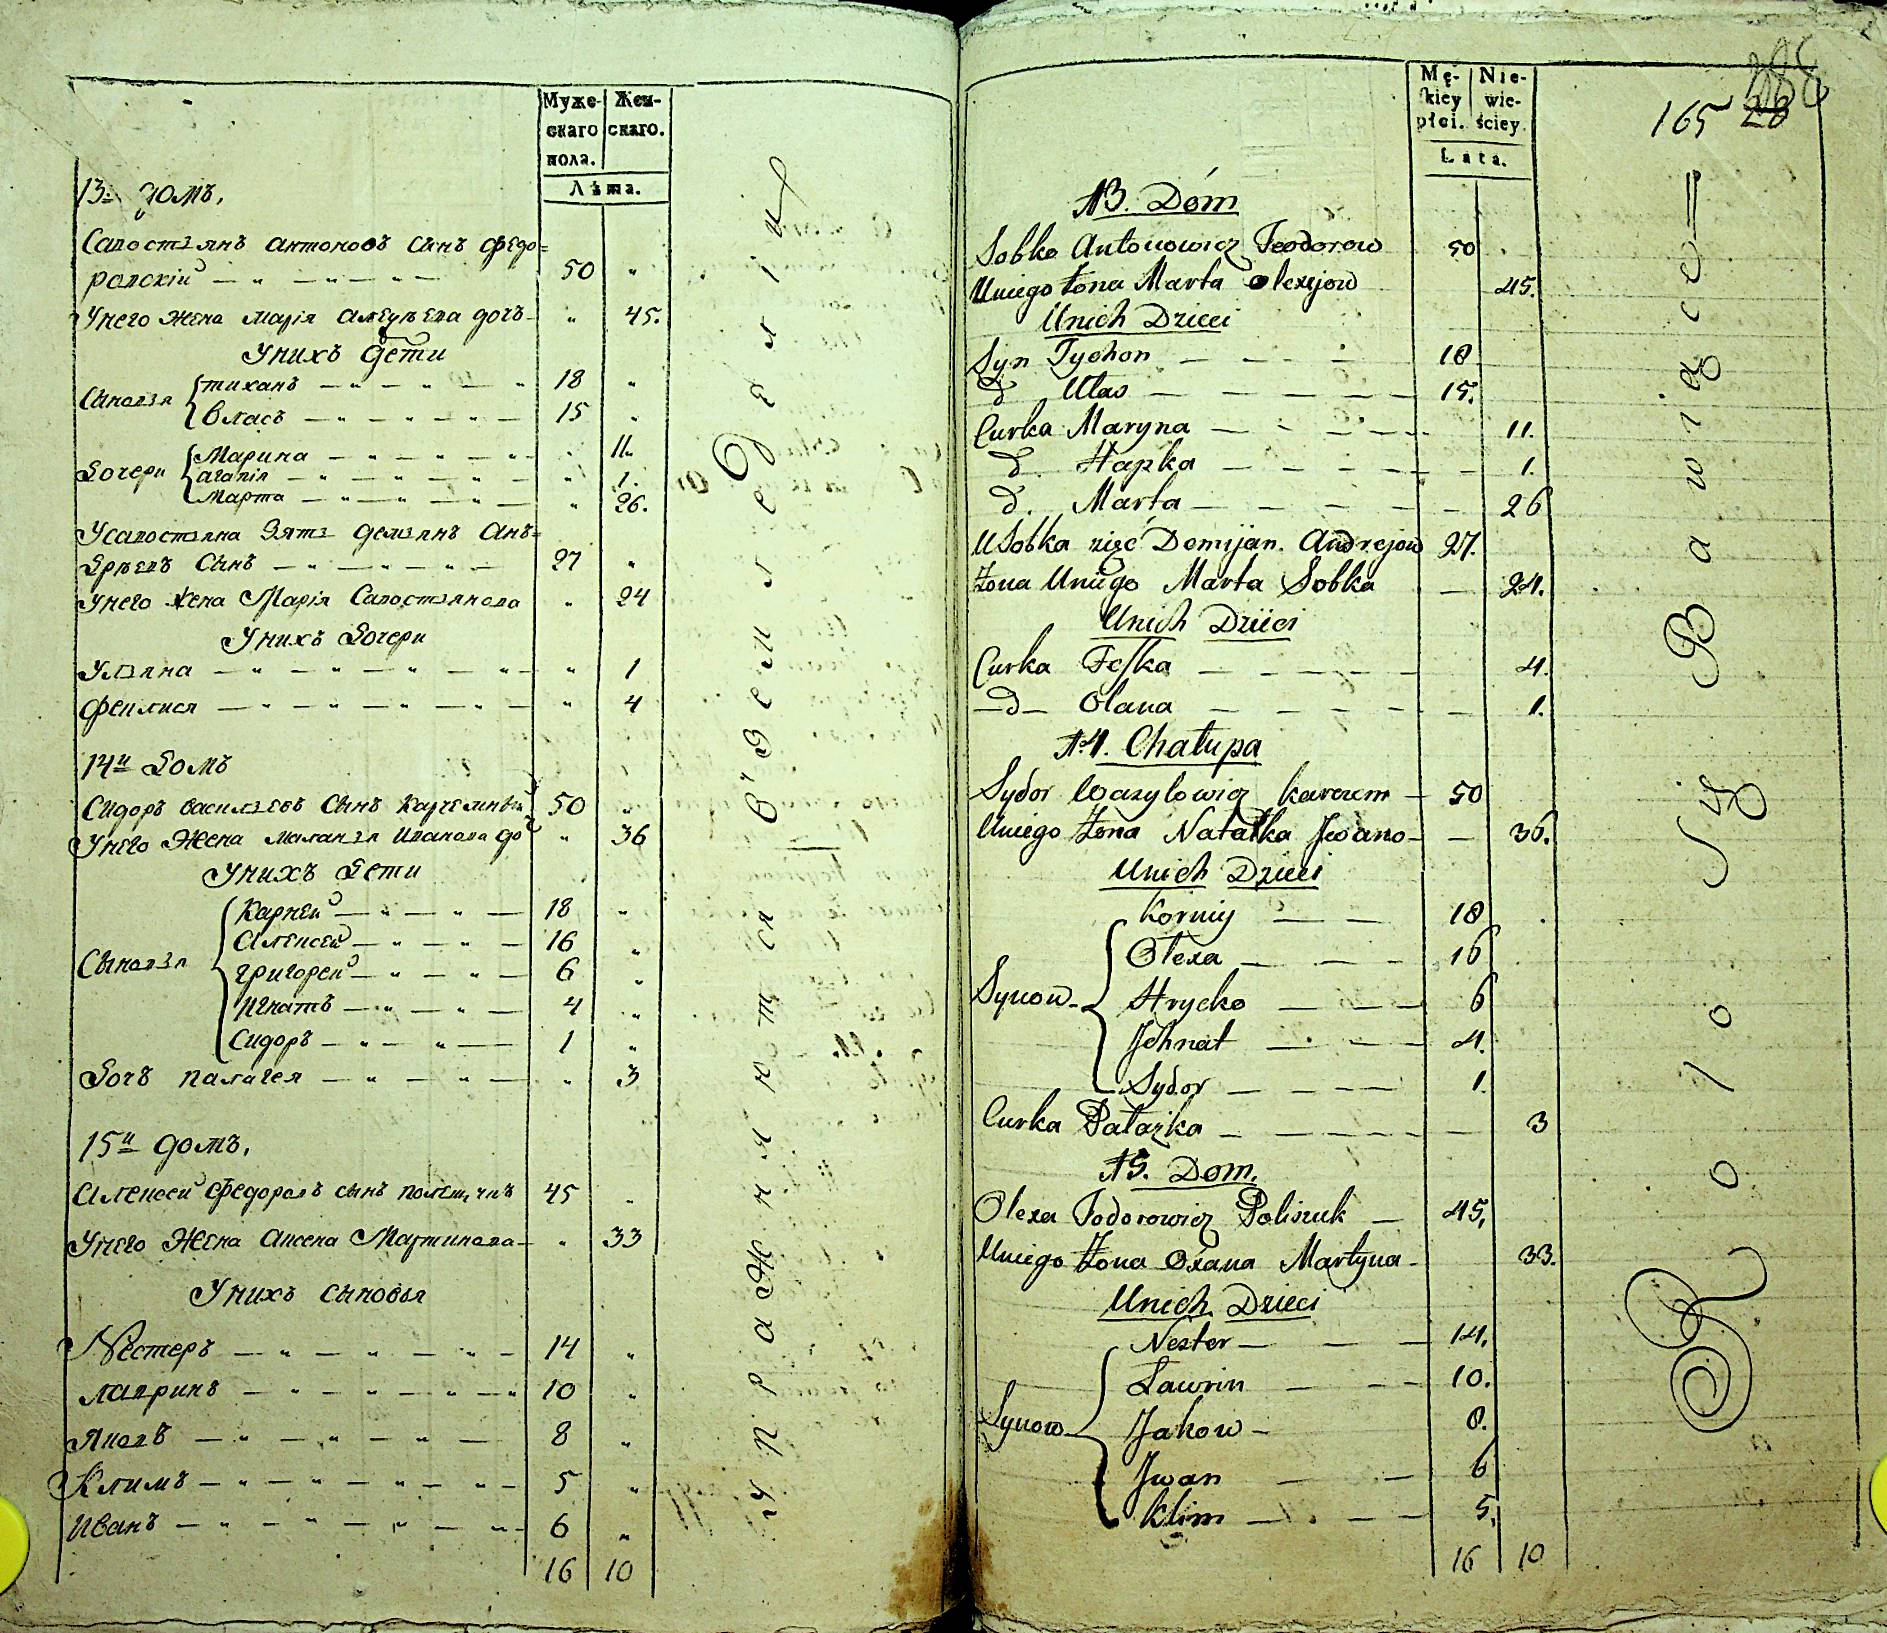 Муже- Жен-
скаго скаго.
пола.
Лѣта.
13й домъ,
Савостьянъ Антоновъ сынъ Федо=
ровскій — „ — „ — „ — 50 „
Унего жена Марія Алексѣева дочь — „ 45.
Унихъ дети
Сыновья { Тиханъ — „ — „ — „ 18 „
Власъ — „ — „ — „ — 15 „
Дочери { Марина — „ — „ — „ 11„
Агапія — „ — „ — „ — „ 1.
Марта — „ — „ — „ — „ 26.
Усавостьяна зять Демьянъ Ан=
дрѣевъ сынъ — „ — „ — „ — 27 „
Унего жена Марія Савостьянова „ 24
Унихъ дочери
Ульяна — „ — „ — „ — „ — „ 1
Фенлися — „ — „ — „ — „ — „ 4
14й домъ
Сидоръ Васильевъ сынъ 50 „
Унего жена Маланья Иванова до „ 36
Унихъ дети
Сыновья { Карней — „ — „ — 18 „
Алексей — „ — „ — 16 „
Григорей — „ — „ — 6 „
Игнатъ — „ — „ — 4 „
Сидоръ — „ — „ — 1 „
Дочь Палагея — „ — „ — „ 3
15й домъ,
Алексей Федоровъ сынъ 45 „
Унего жена Аксена Мартинова — „ 33
Унихъ сыновья
Нестеръ — „ — „ — „ — 14 „
Лавринъ — „ — „ — „ — „ 10 „
Яковъ — „ — „ — „ — 8 „
Климъ — „ — „ — „ — „ 5 „
Иванъ — „ — „ — „ — „ 6 „
16 10
Упражняются въ земледеліи
388
165 28
Mę- Nie-
skiey wie-
płci. ściey.
Lata.
13. Dóm
Sobko Antonowicz Teodorow 50
Uniego żona Marta Olexijow 45.
Unich Dzieci
Syn Tychon — — — 18
d Ułas — — — — 15.
Curka Maryna — — — — 11.
d. Hapka — — — — 1.
d. Marta — — — — 26
U Sobka zięć Demijan Andrejow 27.
Żona Uniego Marta Sobka — 24.
Unich Dzieci
Curka Feśka — — — — 4.
—d— Olana — — — — 1.
14. Chałupa
Sydor Wazylowicz Karczem — 50
Uniego żona Natałka Jwano — — 36.
Unich Dzieci
Korniy — — 18
Ołexa — — — 16
Synow { Hrycko — — — 6
Jehnat — — — 4.
Sydor — — — 1.
Curka Pałażka — — — — 3
15. Dom.
Olexa Fodorowicz Poliszuk — 45,
Uniego żona Oxana Martyna — 33.
Unich Dzieci
Nester — — — 14,
Ławrin — — — 10.
Synow { Jakow — 8.
Jwan — — 6
Klim — — — 5,
16 10
Rolo Się Bawiące=